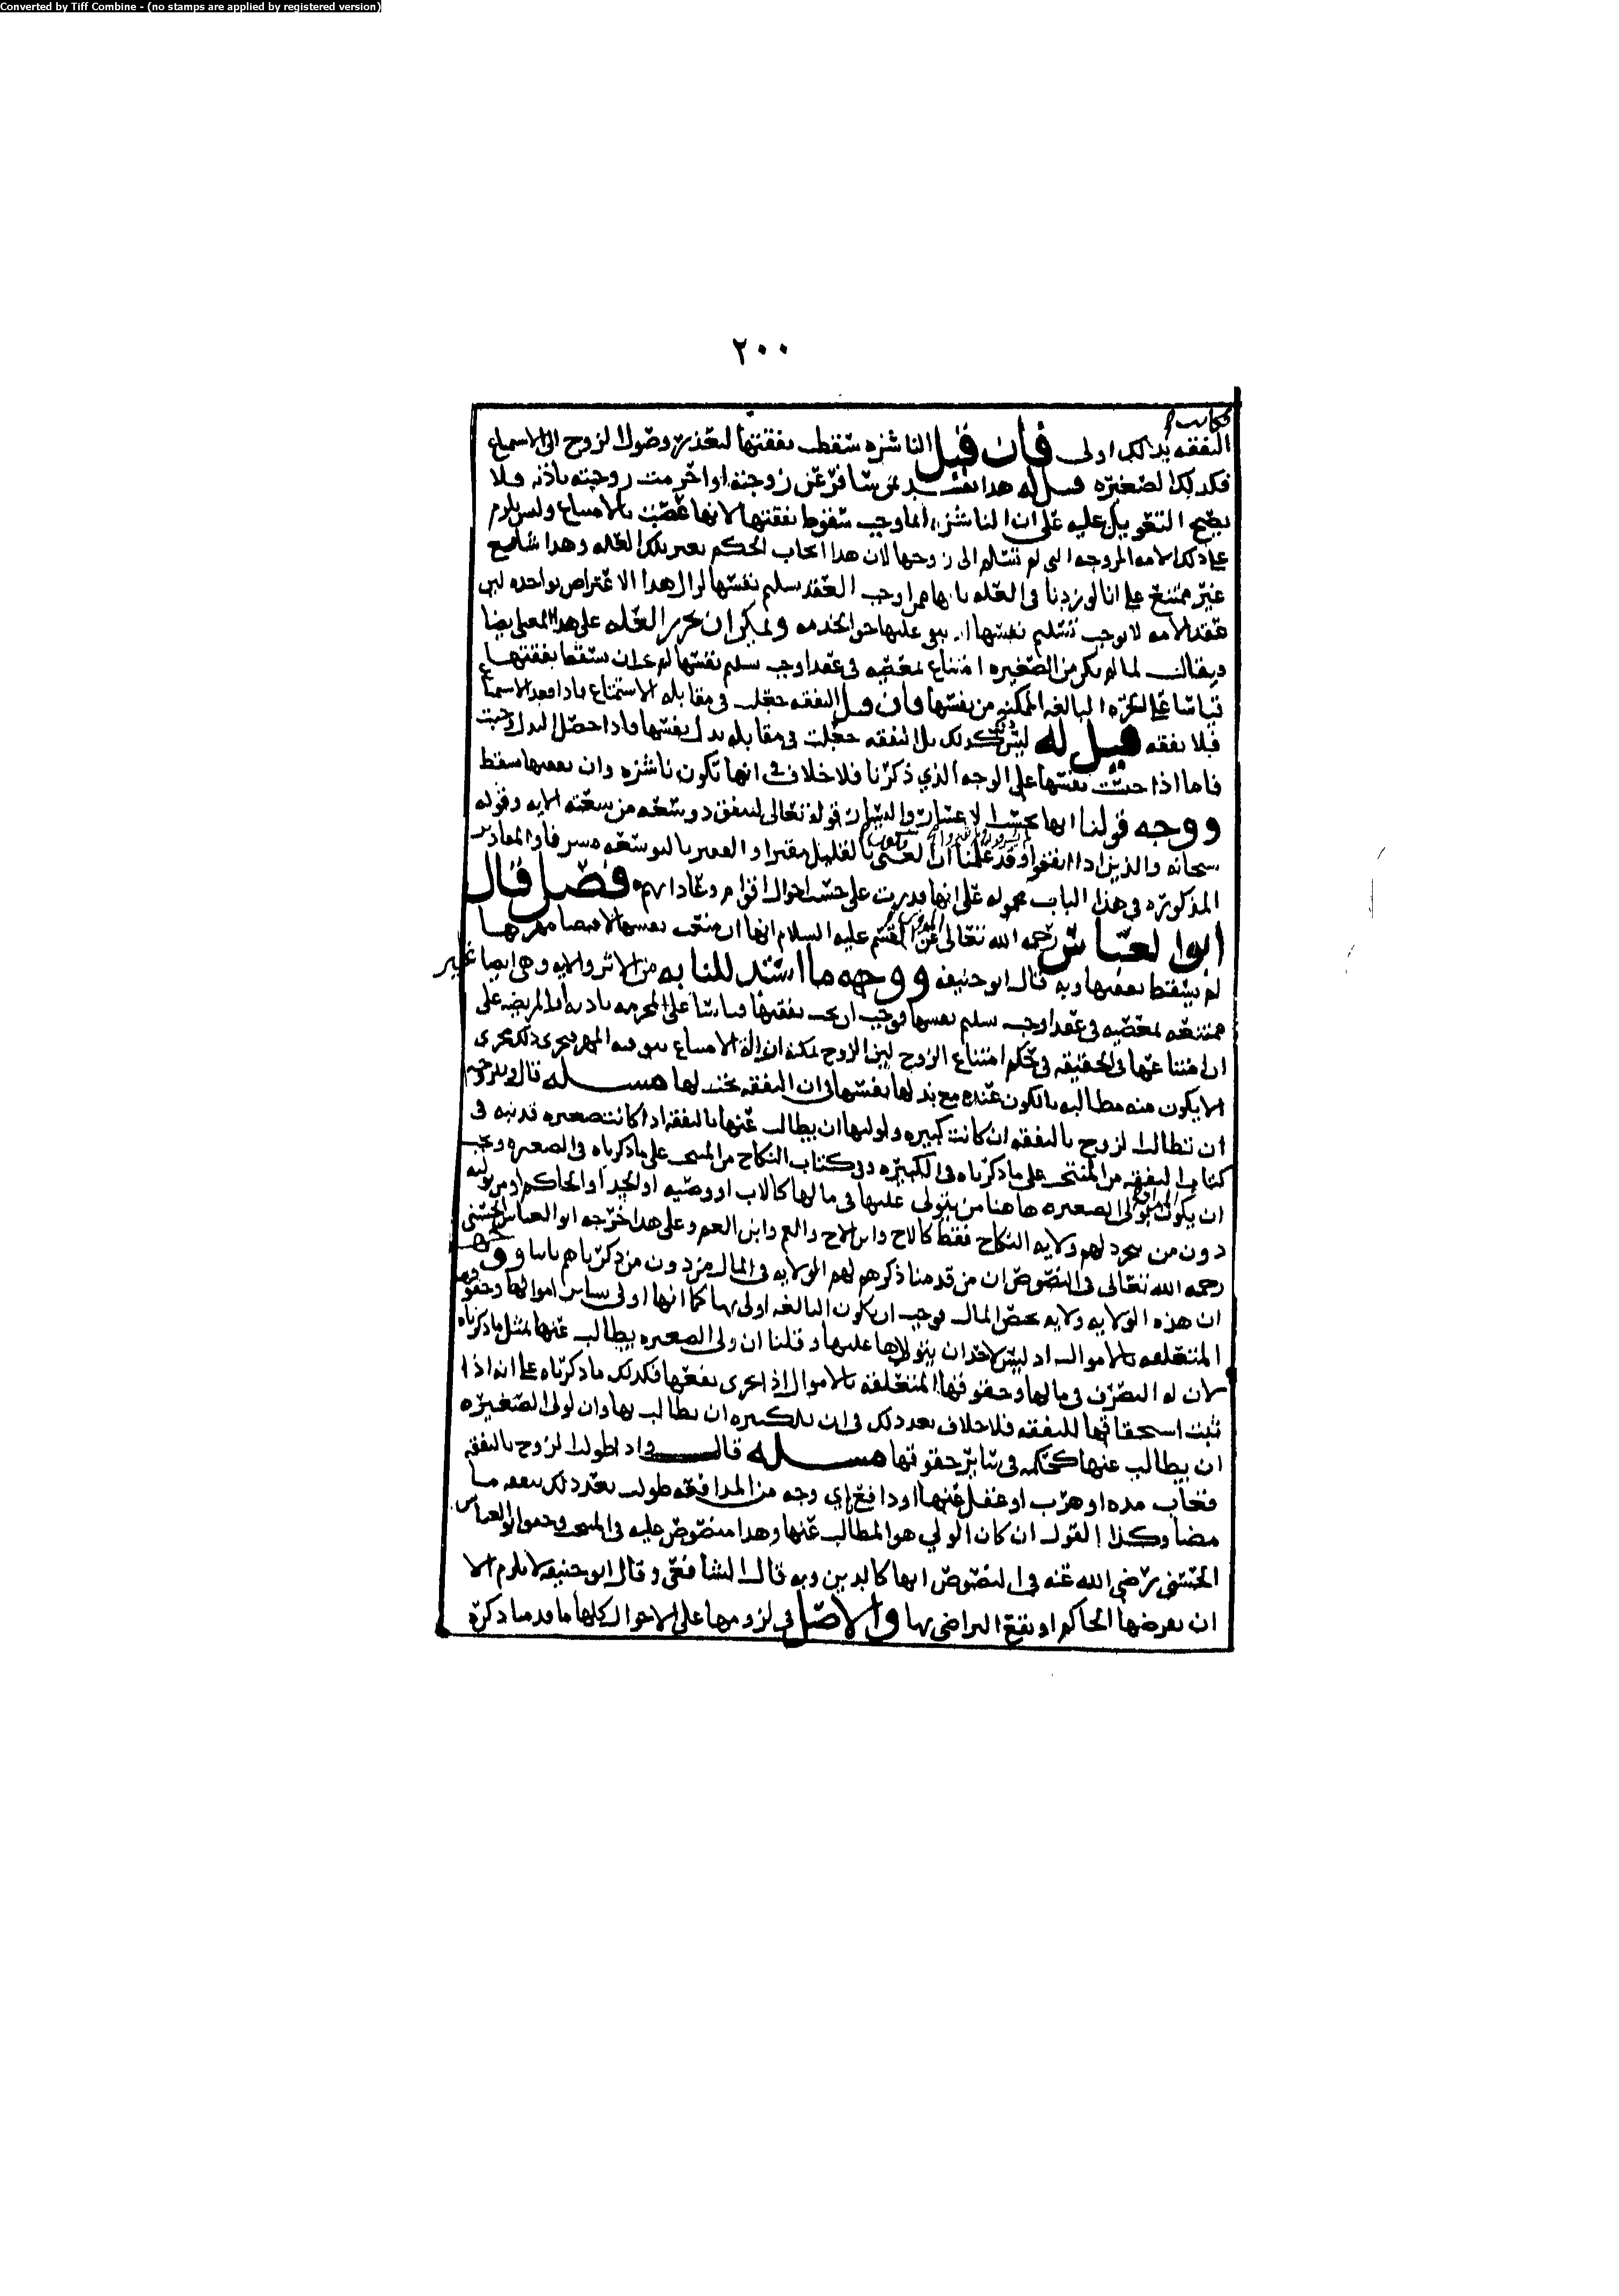 Converted by Tiff Combine - (no stamps are applied by registered version)
٢٠٠
النفقه بذلك اولى فان قيل الناشزه سقطت نفقتها لتعذر وصول الزوج الى الاستمتاع
فكذلك الصغيره قيل له هذا بمن سافر عن زوجته او احرمت زوجته باذنه ولا
يصح التعويل عليه على ان الناشزه انما وجب سقوط نفقتها لانها عصت بالامتناع وليس يلزم
على ذلك الامه المزوجه التي لم تسلم الى زوجها لان هذا ايجاب الحكم بغير تلك العله وهذا شايع
غير ممتنع على انا لو زدنا في العله بانها ممن اوجب العقد تسليم نفسها لزال هذا الاعتراض بواحده لان
عقد الامه لا يوجب تسليم نفسها عليها حق الخدمه ويمكن ان تحرر العله على هذا المعنى ايضا
ويقال لما لم يكن من الصغيره امتناع بمعصيه في عقد اوجب تسليم نفسها لم يجز ان تسقط نفقتها
قياسا على الحره البالغه الممكنه من نفسها فان قيل النفقه جعلت في مقابله الاستمتاع فاذا فقد الاستمتاع
فلا نفقه قيل له ليس كذلك بل النفقه جعلت في مقابله بذل نفسها فاذا حصل البذل وجبت
فاما اذا حبست نفسها على الوجه الذي ذكرنا فلا خلاف في انها تكون ناشزه وان نفقتها تسقط
ووجه قولنا انها بحسب الاعسار واليسار قوله تعالى لينفق ذو سعه من سعته الايه وقوله
سبحانه والذين اذا انفقوا وقد علمنا ان الغني بالقليل مقترا والفقير بالتوسعه مسرفا والمقادير
المذكوره في هذا الباب محموله على انها قدرت على حسب احوال اقوام وعاداتهم فصل قال
ابو العباس رحمه الله تعالى عن القسم عليه السلام انها ان منعت نفسها لاقتضا مهرها
لم يسقط نفقتها وبه قال ابو حنيفه ووجهه ما استدللنا به من الاثر والايه وهي ايضا غير
ممتنعه بمعصيه في عقد اوجب تسليم نفسها فوجب ان تجب نفقتها قياسا على المحرمه باذنه او المريضه على
ان امتناعها في الحقيقه في حكم امتناع الزوج لان الزوج يمكنه ازاله الامتناع بتوفيه المهر فجرى ذلك مجرى
الا يكون منه مطالبه بالكون عنده مع بذلها نفسها في ان النفقه تجب لها مسله قال وللزوجه
ان تطالب الزوج بالنفقه ان كانت كبيره ولوليها ان يطالب عنها بالنفقه اذا كانت صغيره قد نبه في
كتاب النفقه من المنتخب على ما ذكرناه في الكبيره وفي كتاب النكاح من المنتخب على ما ذكرناه في الصغيره ويجب
ان يكون ولي الصغيره هاهنا من يتولى عليها في مالها كالاب او وصيه او الجد او الحاكم او من يوليه
دون من تجرد لهم ولايه النكاح فقط كالاخ وابن الاخ والعم وابن العم وعلى هذا خرجه ابو العباس الحسني
رحمه الله تعالى في النصوص ان من قدمنا ذكرهم لهم الولايه في المال من دون من ذكرناهم ثانيا ووجهه
ان هذه الولايه ولايه تخص المال فوجب ان يكون البالغه اولى بها كما انها اولى بساير اموالها وحقوقها
المتعلقه بالاموال اذ ليس لاحد ان يتولاها عليها وقلنا ان ولي الصغيره يطالب عنها بمثل ما ذكرناه
لان له التصرف في مالها وحقوقها المتعلقه بالاموال فكذلك ما ذكرناه على انه اذا
ثبت استحقاقها للنفقه فلا خلاف بعد ذلك في ان للكبيره ان تطالب بها وان لولي الصغيره
ان يطالب عنها كحكمه في ساير حقوقها مسله قال واذا طولب الزوج بالنفقه
فغاب مده او هرب او غفل عنها او دافع باي وجه من المدافعه طولب بعد ذلك بنفقه ما
مضا وكذا القول ان كان الولي هو المطالب عنها وهذا منصوص عليه في المنتخب ابو العباس
الحسني رضي الله عنه في النصوص انها كالدين وبه قال الشافعي وقال ابو حنيفه لا يلزم الا
ان يفرضها الحاكم او يقع التراضي بها والاصل في لزومها على الاحوال كلها ما قدمنا ذكره